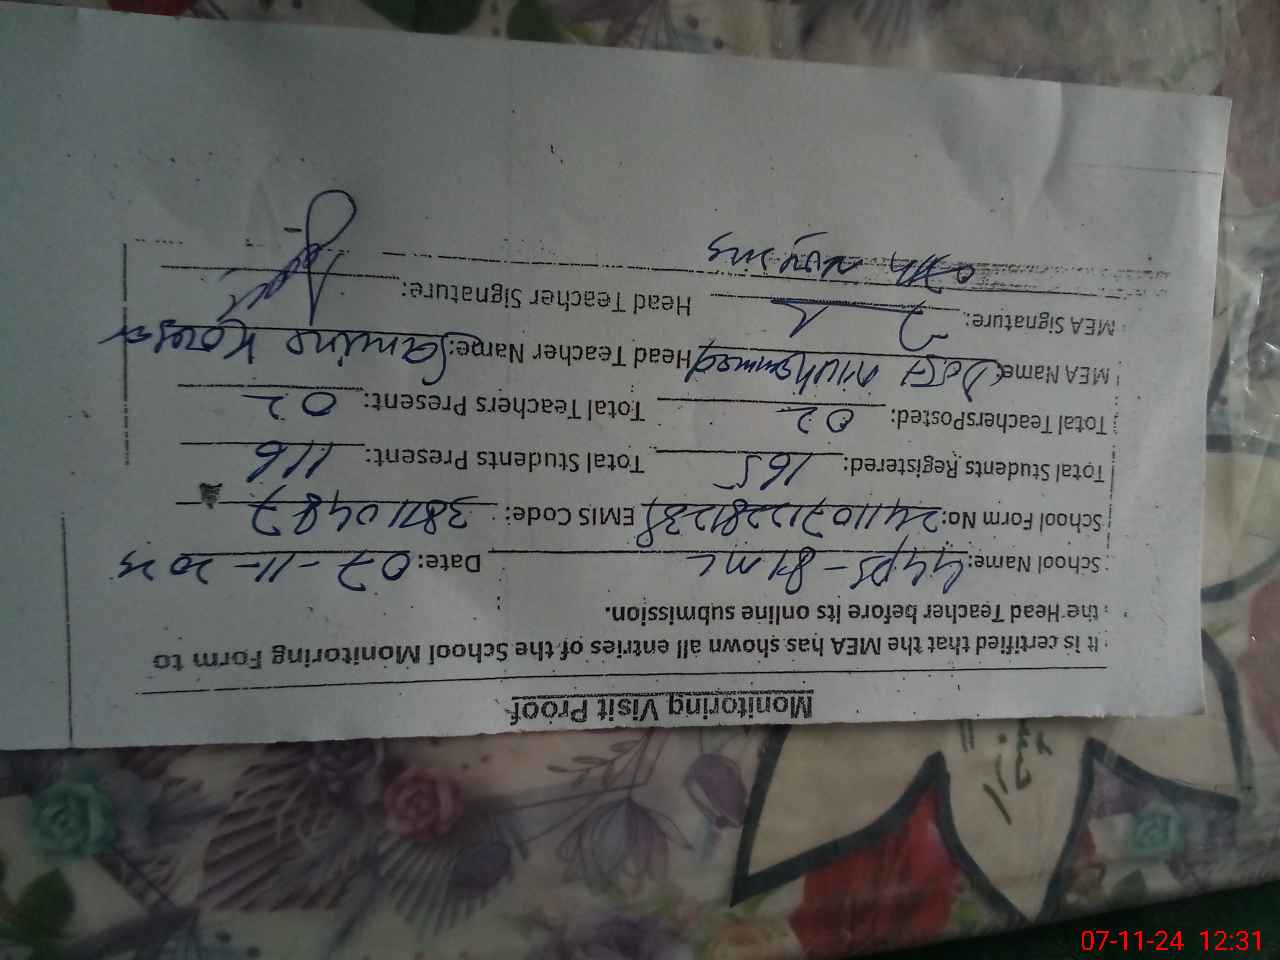 Monitoring Visit Proof
It is certified that the MEA has shown all entries of the School Monitoring Form to
the Head Teacher before its online submission.
School Name: GGPS - 81 ML Date: 07-11-2024
School Form No: EMIS Code: 38110487
Total Students Registered: 165 Total Students Present: 116
Total TeachersPosted: 02 Total Teachers Present: 02
MEA Name: Dost Muhammad Head Teacher Name: Samina Kousar
MEA Signature: Head Teacher Signature:
07-11-24 12:31